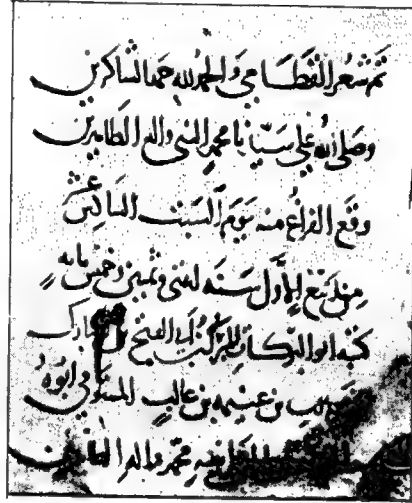 تم شعر القطامي والحمد لله حمد الشاكرين
وصلى الله على سيدنا محمد النبي واله الطاهرين
وقع الفراغ منه يوم السبت الثالث عشر
من ربيع الاول سنه اثنى وثمنين وخمس مايه
كتبه ابو البركات المبرك بن ابي الفتح بن المبارك
بن موهب بن غنيمه بن غالب المستوفي ابوه
محمد واله الطاهرين